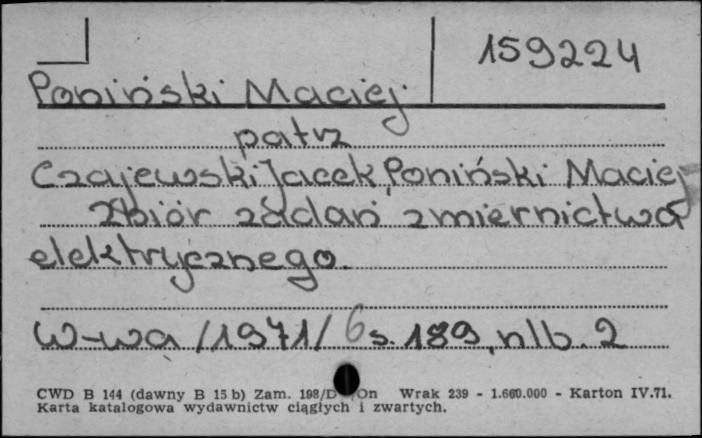 159224
Poniński Maciej
patrz
Czajewski Jacek, Poniński Maciej
Zbiór zadań z miernictwa
elektrycznego.
W-wa /1971/ 6 s. 189, nlb. 2
CWD B 144 (dawny B 15 b) Zam. 198/D On Wrak 239 - 1.660.000 - Karton IV.71.
Karta katalogowa wydawnictw ciągłych i zwartych.